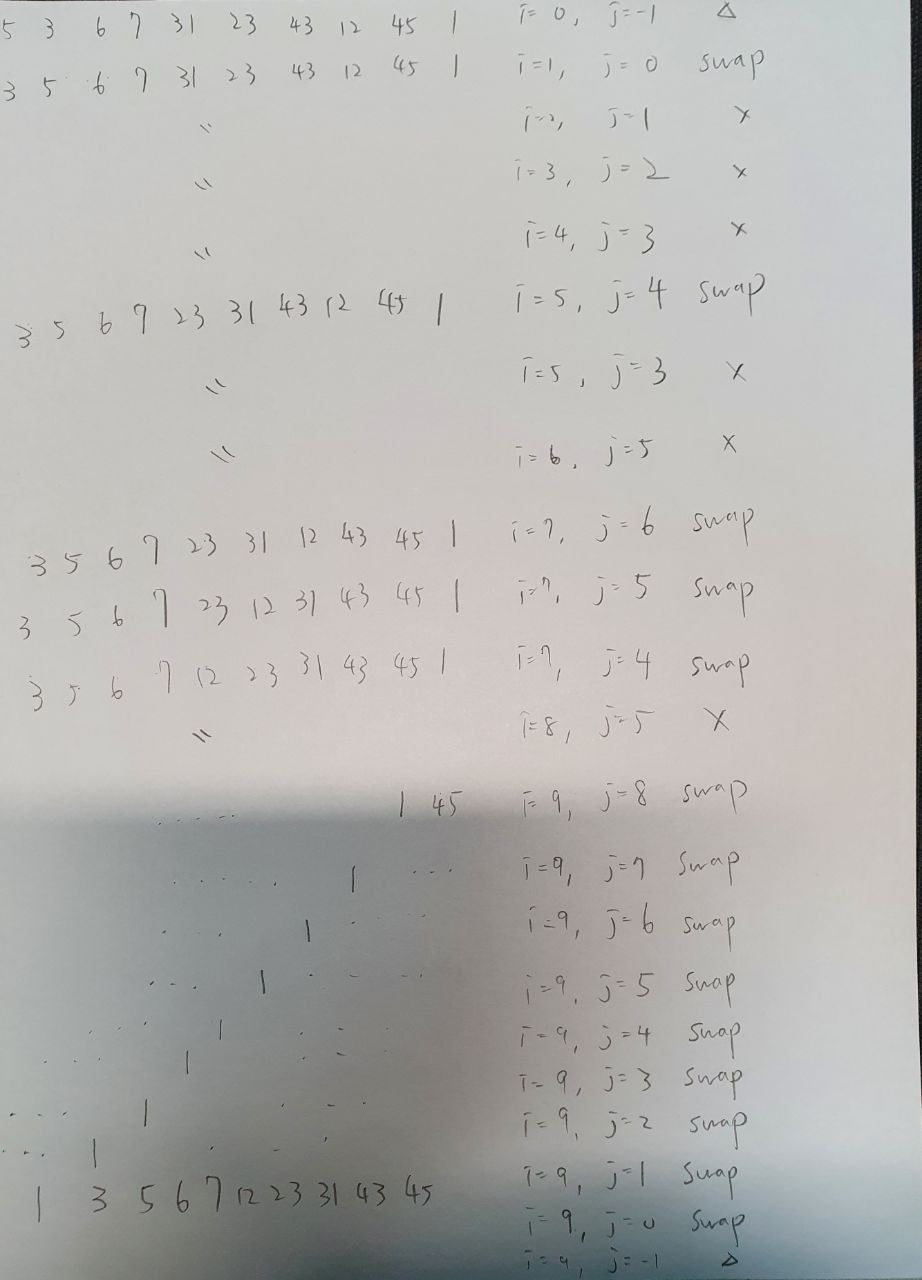 5 3 6 7 31 23 43 12 45 1 i=0, j=-1 △
3 5 6 7 31 23 43 12 45 1 i=1, j=0 swap
〃 i=2, j=1 ×
〃 i=3, j=2 ×
〃 i=4, j=3 ×
3 5 6 7 23 31 43 12 45 1 i=5, j=4 swap
〃 i=5, j=3 ×
〃 i=6, j=5 ×
3 5 6 7 23 31 12 43 45 1 i=7, j=6 swap
3 5 6 7 23 12 31 43 45 1 i=7, j=5 swap
3 5 6 7 12 23 31 43 45 1 i=7, j=4 swap
〃 i=8, j=5 ×
..... 1 45 i=9, j=8 swap
..... 1 ... i=9, j=7 swap
... 1 ... i=9, j=6 swap
... 1 .... i=9, j=5 swap
... 1 ... i=9, j=4 swap
... 1 ... i=9, j=3 swap
... 1 ... i=9, j=2 swap
... 1 ... i=9, j=1 swap
1 3 5 6 7 12 23 31 43 45 i=9, j=0 swap
i=9, j=-1 △